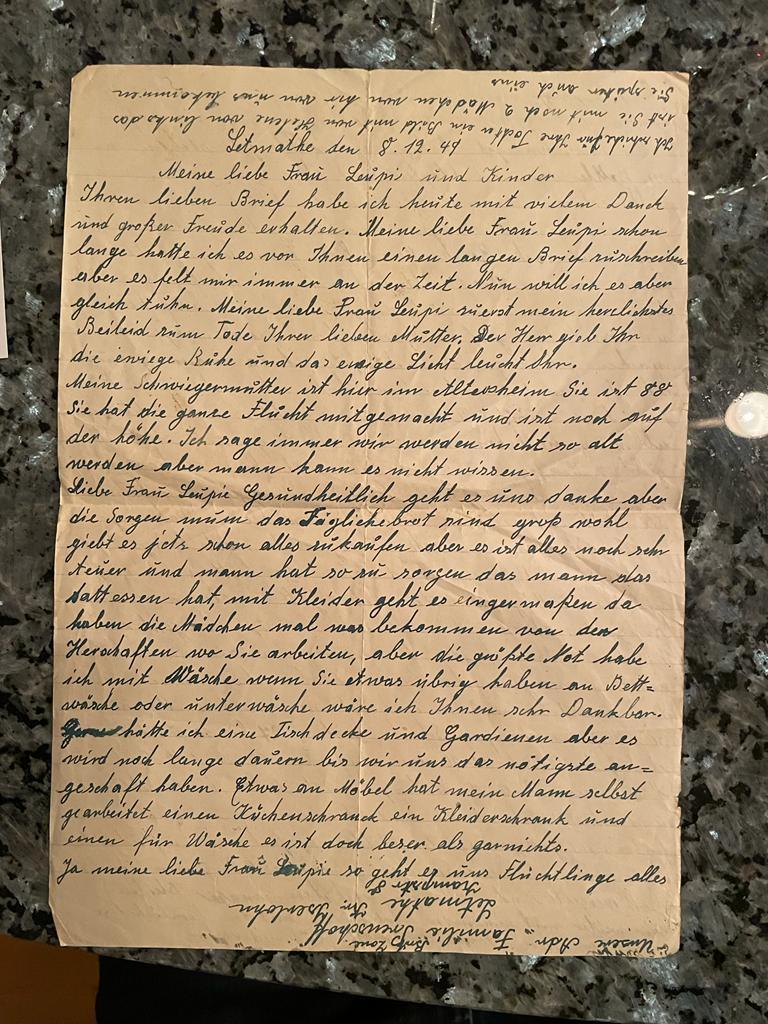 Ich schicke für Ihre Tochter ein Bild mit von Helene von links das
ist Sie mit noch 2 Mädchen von hir von uns bekommen
Sie später auch eins
Letmathe den 8.12.49
Meine liebe Frau Leupi und Kinder
Ihren lieben Brief habe ich heute mit vielem Danck
und großer Freude erhalten. Meine liebe Frau Leupi schon
lange hatte ich es vor Ihnen einen langen Brief zuschreiben
aber es felt mir immer an der Zeit. Nun will ich es aber
gleich tuhn. Meine liebe Frau Leupi zuerst mein herzlichstes
Beileid zum Tode Ihrer lieben Mutter. Der Herr gieb Ihr
die ewige Ruhe und das ewige Licht leucht Ihr.
Meine Schwiegermutter ist hier im Altersheim Sie ist 88
Sie hat die ganze Flucht mitgemacht und ist noch auf
der höhe. Ich sage immer wir werden nicht so alt
werden aber mann kann es nicht wissen.
Liebe Frau Leupie Gesundheitlich geht es uns danke aber
die Sorgen mum das Täglichebrot sind groß wohl
giebt es jetz schon alles zukaufen aber es ist alles noch sehr
teuer und mann hat so zu sorgen das mann das
sattessen hat, mit Kleider geht es eingermaßen da
haben die Mädchen mal was bekommen von den
Herschaften wo Sie arbeiten, aber die größte Not habe
ich mit Wäsche wenn Sie etwas übrig haben an Bett=
wäsche oder unterwäsche wäre ich Ihnen sehr Dankbar.
Gerne hätte ich eine Tischdecke und Gardienen aber es
wird noch lange dauern bis wir uns das nötigste an=
geschaft haben. Etwas an Möbel hat mein Mann selbst
gearbeitet einen Küchenschranck ein Kleiderschrank und
einen für Wäsche es ist doch beser als garnichts.
Ja meine liebe Frau Leupie so geht es uns Flüchtlinge alles
Unsere Adr. Familie
Britz Zone
Letmathe Kr. Iserlohn